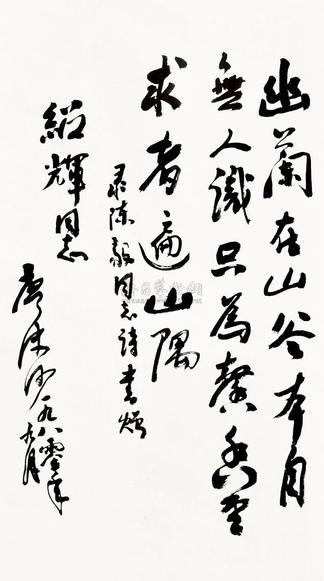 幽蘭在山谷本自
無人識只為馨香重
求者遍山隅
录陈毅同志詩書赠
紹輝同志
一九八零年
九月